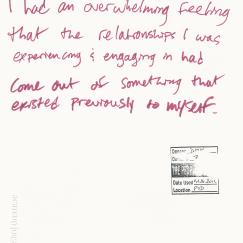 I had an overwhelming feeling
that the relationships I was
experiencing & engaging in had
come out of something that
existed previously to myself.
Date Used
Location